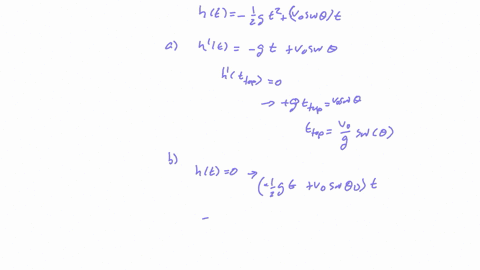 h(t) = -½gt² + (v₀ sinθ)t
a) h'(t) = -gt + v₀ sinθ
h'(t_top) = 0
→ +g t_top = v₀ sinθ
t_top = v₀/g sin(θ)
b)
h(t) = 0 →
(-½gt + v₀ sinθ₀)t
-